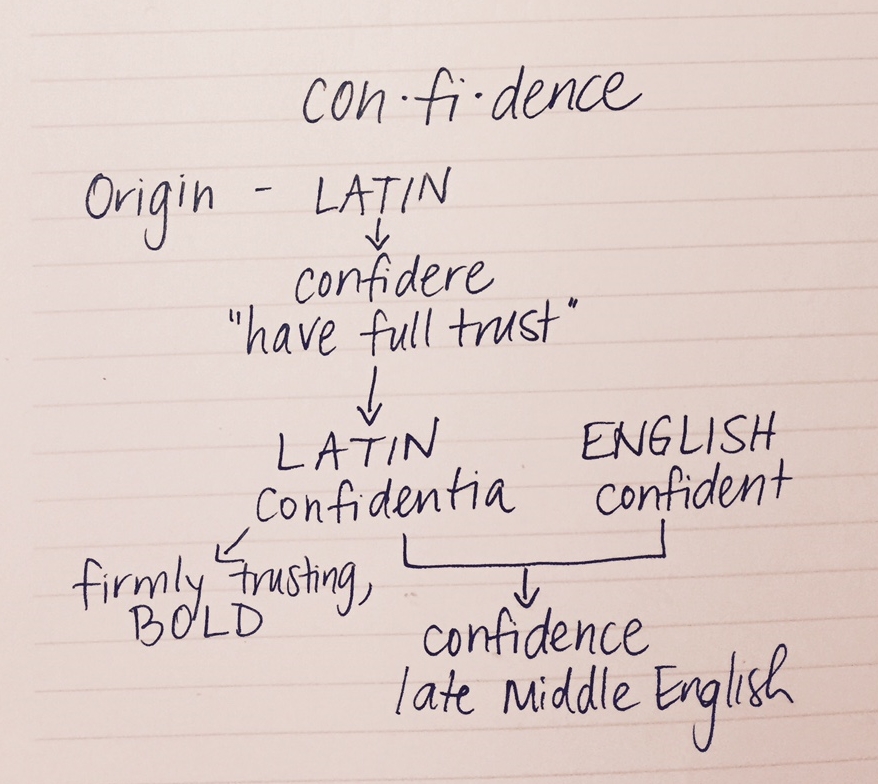 con·fi·dence
Origin - LATIN
confidere
"have full trust"
LATIN ENGLISH
Confidentia confident
firmly trusting,
BOLD
confidence
late Middle English